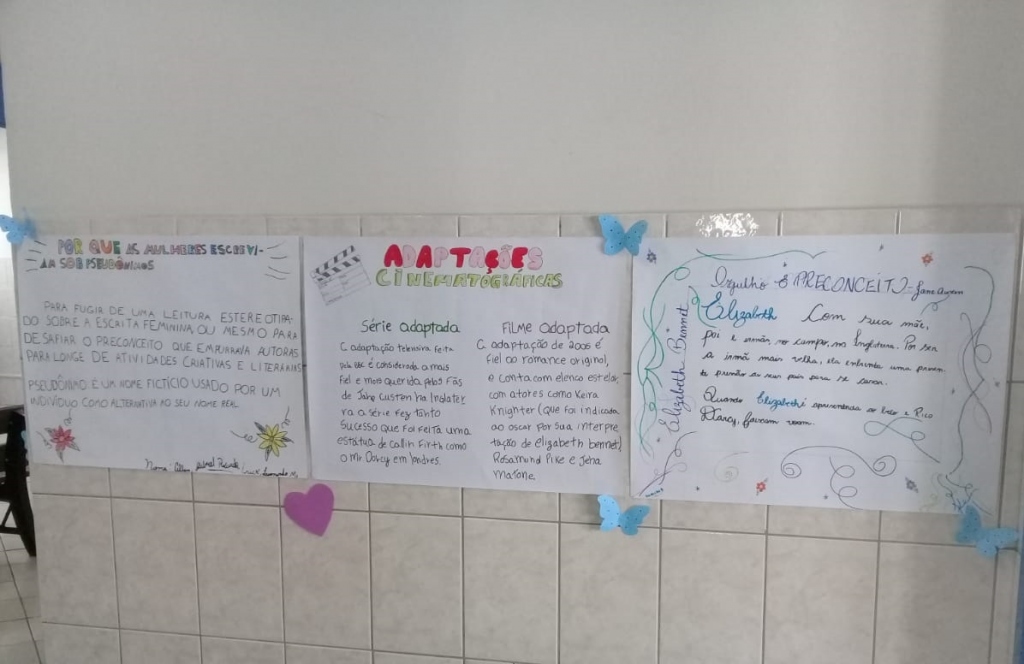 POR QUE AS MULHERES ESCREVI-
AM SOB PSEUDÔNIMOS
PARA FUGIR DE UMA LEITURA ESTEREOTIPA-
DO SOBRE A ESCRITA FEMININA, OU MESMO PARA
DESAFIAR O PRECONCEITO QUE EMPURRAVA AUTORAS
PARA LONGE DE ATIVIDADES CRIATIVAS E LITERÁRIAS
PSEUDÔNIMO É UM NOME FICTÍCIO USADO POR UM
INDIVÍDUO COMO ALTERNATIVA AO SEU NOME REAL
ADAPTAÇÕES
CINEMATOGRÁFICAS
Série adaptada
adaptação televisiva feita
pela BBC é considerada a mais
fiel e mais querida pelos Fãs
de Jane Austen na Inglater
ra a série fez tanto
Sucesso que foi feita uma
estátua de Collin Firth como
o Mr Darcy em londres.
FILME adaptada
adaptação de 2005 é
fiel ao romance original,
e conta com elenco estelar
com atores como Keira
Knighter (que foi indicada
ao oscar por sua interpre
tação de elizabeth bennet)
Rosamund Pike e Jena
malone.
Orgulho E PRECONCEITO - Jane Austen
Elizabeth Bennet
Elizabeth Com sua mãe,
pai e irmãs no campo, na Inglaterra. Por ser
a irmã mais velha, ela enfrenta uma
pressão de seus pais para se casar.
Quando Elizabeth é apresentada ao belo e Rico
Darcy,